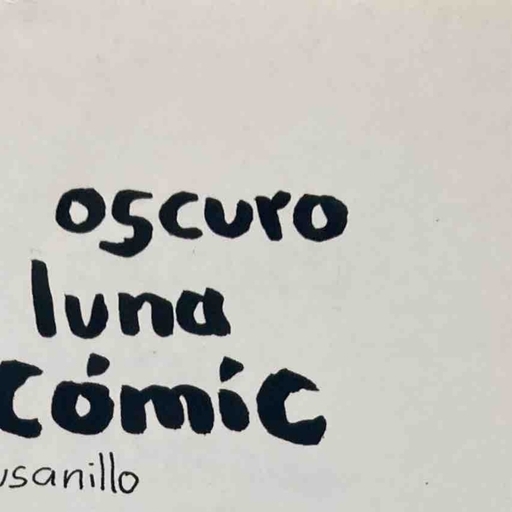 oscuro
luna
cómic
usanillo